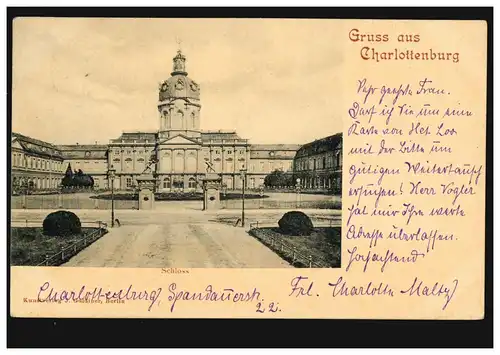 Gruss aus
Charlottenburg
Sehr geehrte Frau.
Darf ich Sie um eine
Karte von Het Loo
mit der Bitte um
gütigen Weitertausch
ersuchen! Herr Vogler
hat mir Ihre werte
Adresse überlassen.
Hochachtend
Schloss
Charlottenburg, Spandauerstr.
22.
Frl. Charlotte Maltz
Kunstverlag Berlin